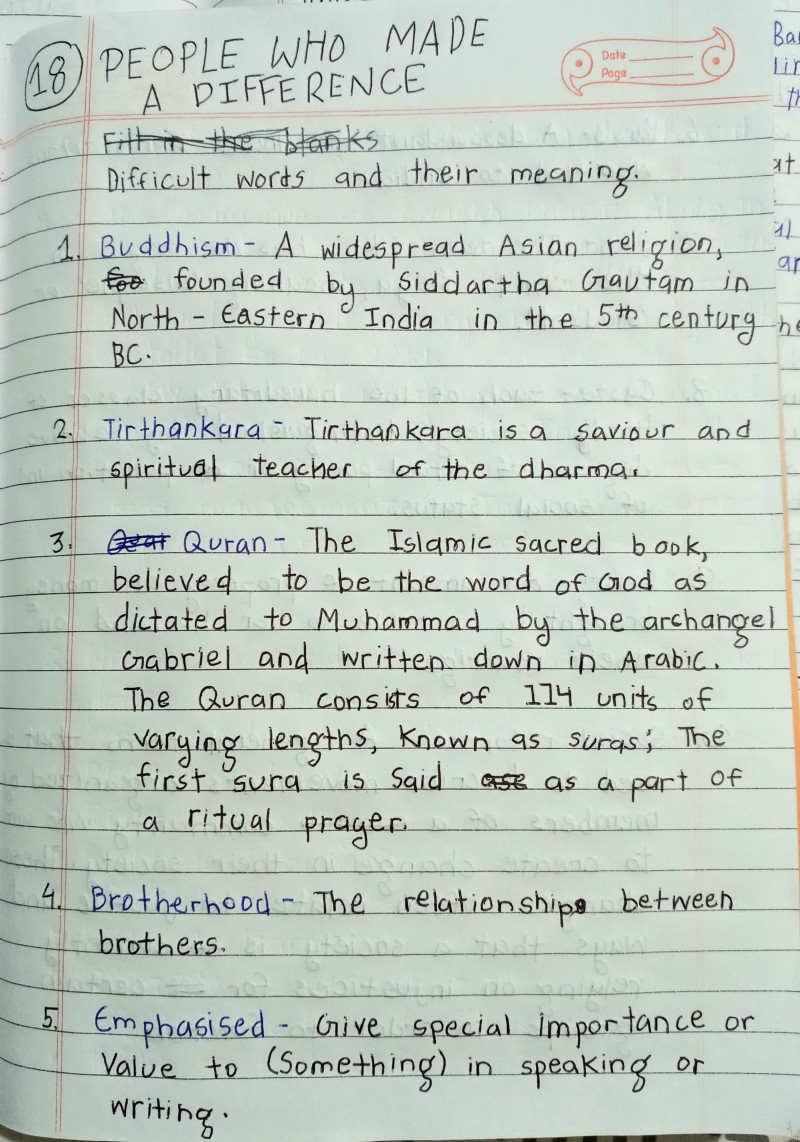 18 PEOPLE WHO MADE
A DIFFERENCE
Date
Page
Fill in the blanks
Difficult words and their meaning.
1. Buddhism - A widespread Asian religion,
foo founded by Siddartha Gautam in
North - Eastern India in the 5th century
BC.
2. Tirthankara - Tirthankara is a saviour and
spiritual teacher of the dharma.
3. Quran - The Islamic sacred book,
believed to be the word of God as
dictated to Muhammad by the archangel
Gabriel and written down in Arabic.
The Quran consists of 114 units of
varying lengths, known as suras; The
first sura is said as a part of
a ritual prayer.
4. Brotherhood - The relationship between
brothers.
5. Emphasised - Give special importance or
Value to (Something) in speaking or
writing.